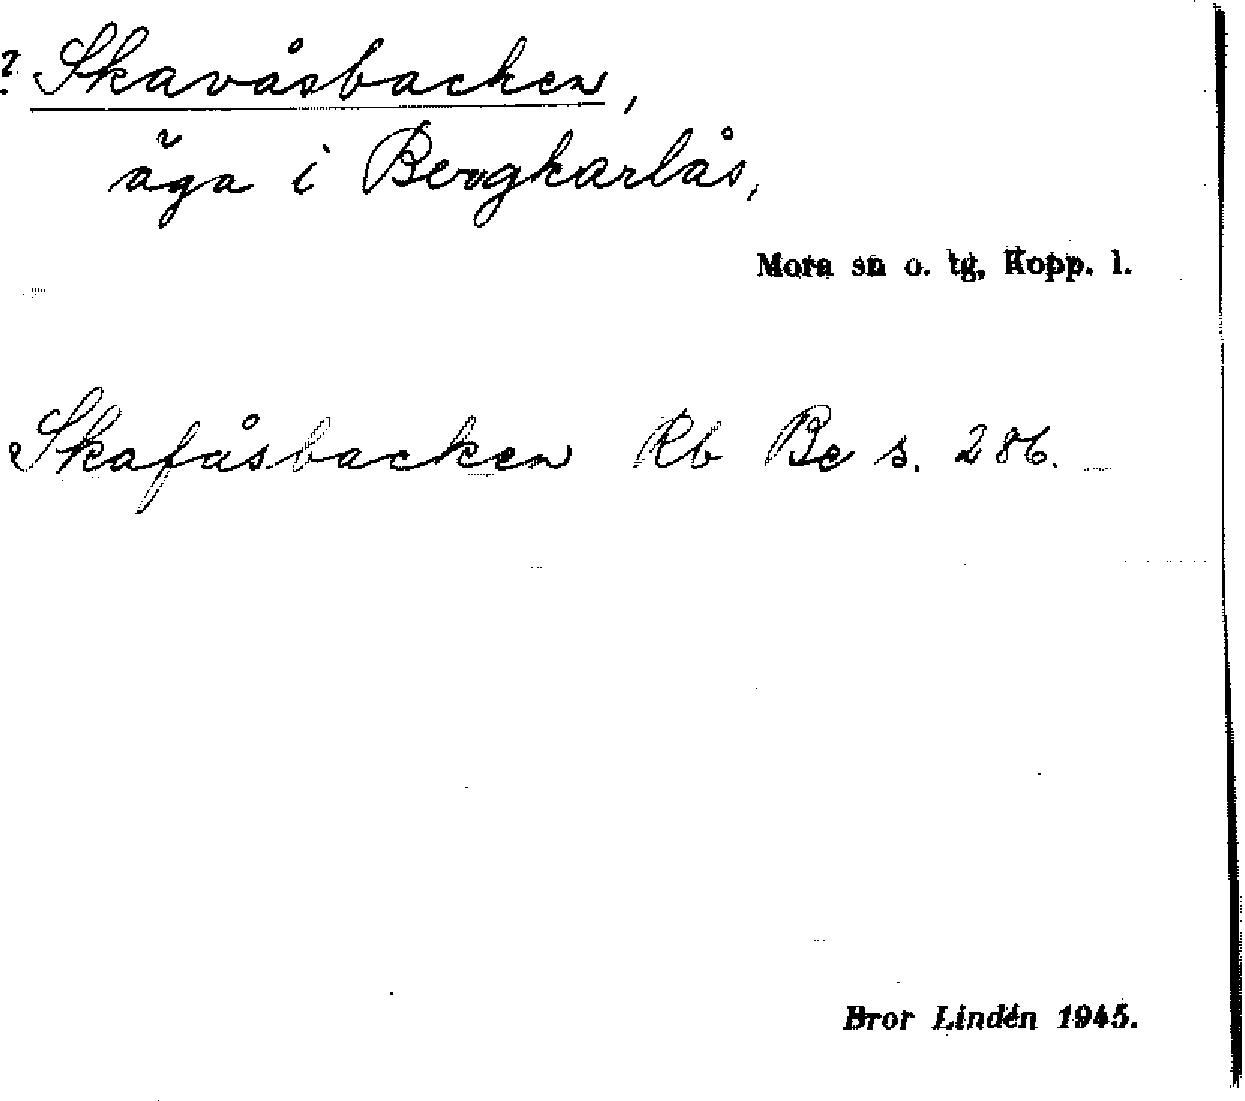 ? Skavåsbacken,
äga i Bergkarlås,
Mora sn o. tg, Kopp. l.
Skafåsbacken Rb Be s. 286.
Bror Lindén 1945.